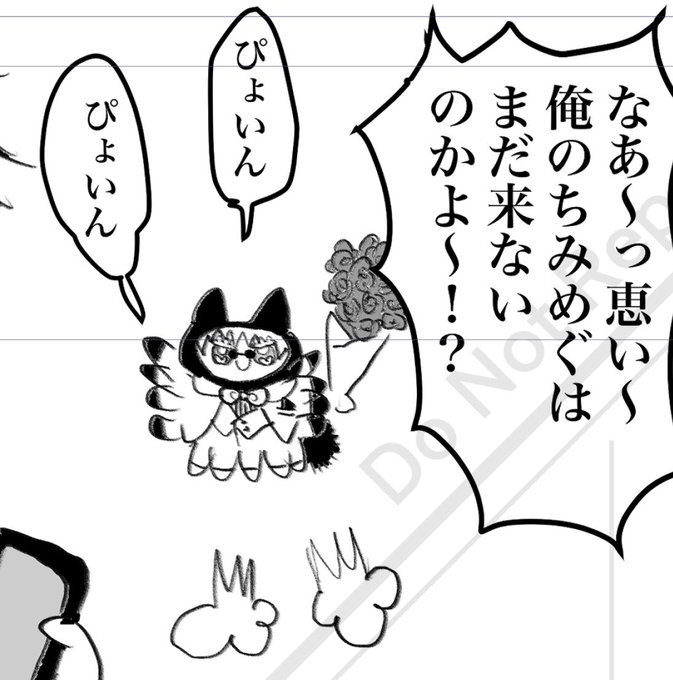 なあ～っ恵い～
俺のちみめぐは
まだ来ない
のかよ～！？
ぴょいん
ぴょいん
Do Not Rep